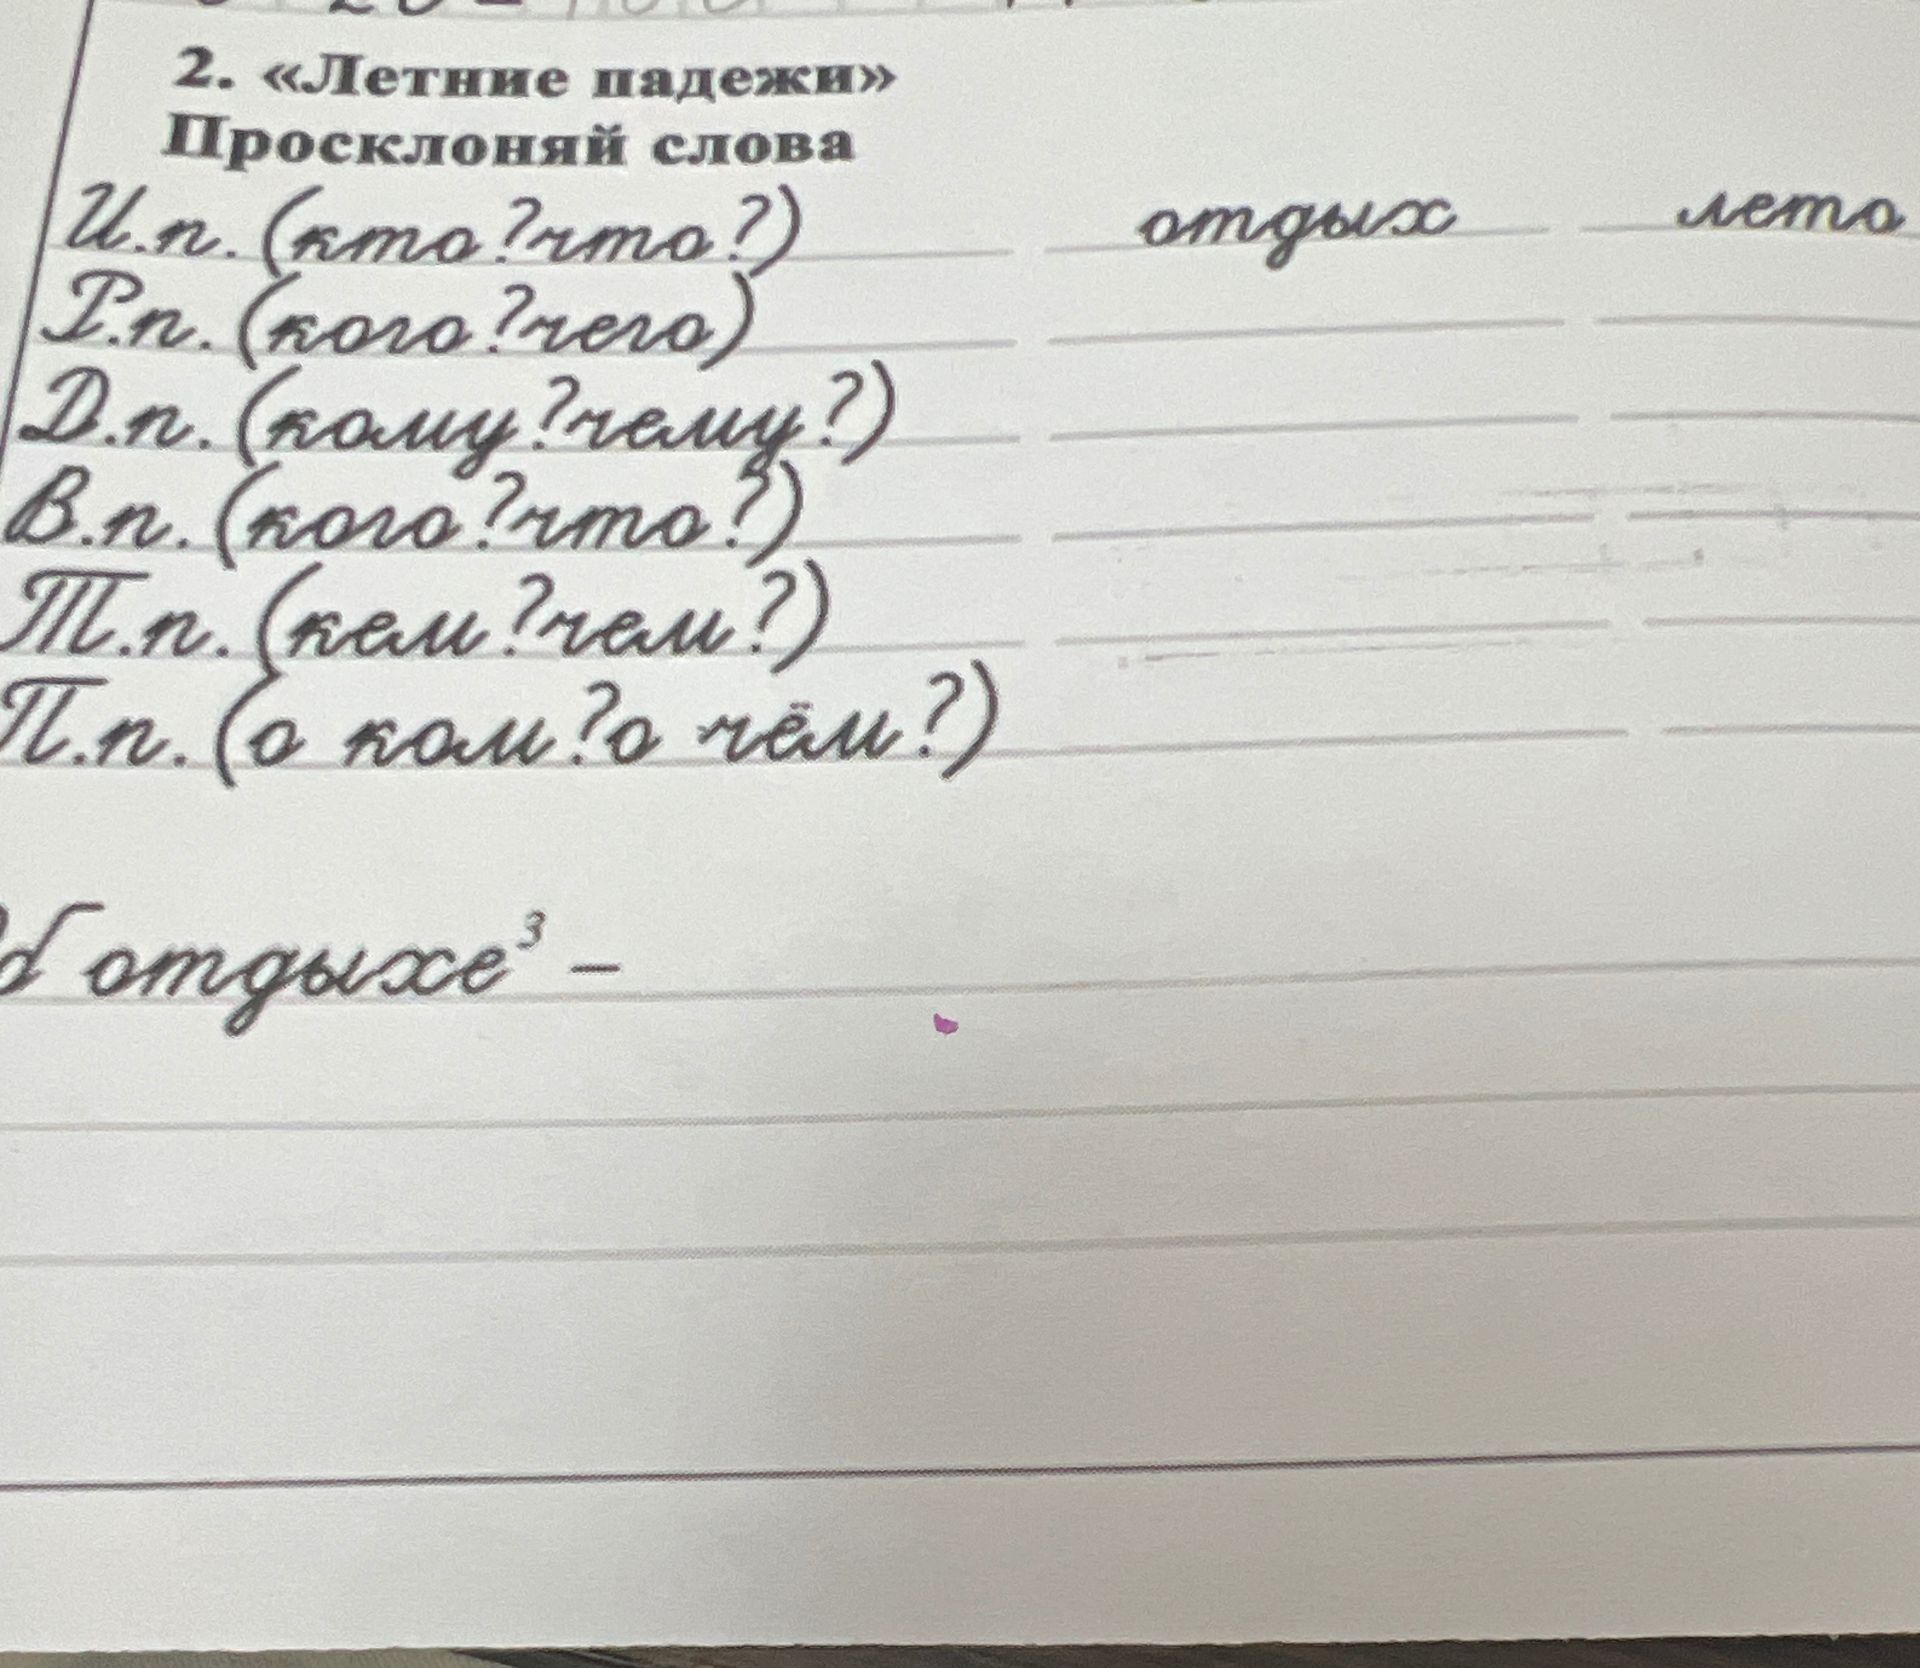 2. «Летние падежи»
Просклоняй слова
И.п. (кто?что?) отдых лето
Р.п. (кого?чего)
Д.п. (кому?чему?)
В.п. (кого?что?)
Т.п. (кем?чем?)
П.п. (о ком?о чём?)
Об отдыхе³ –